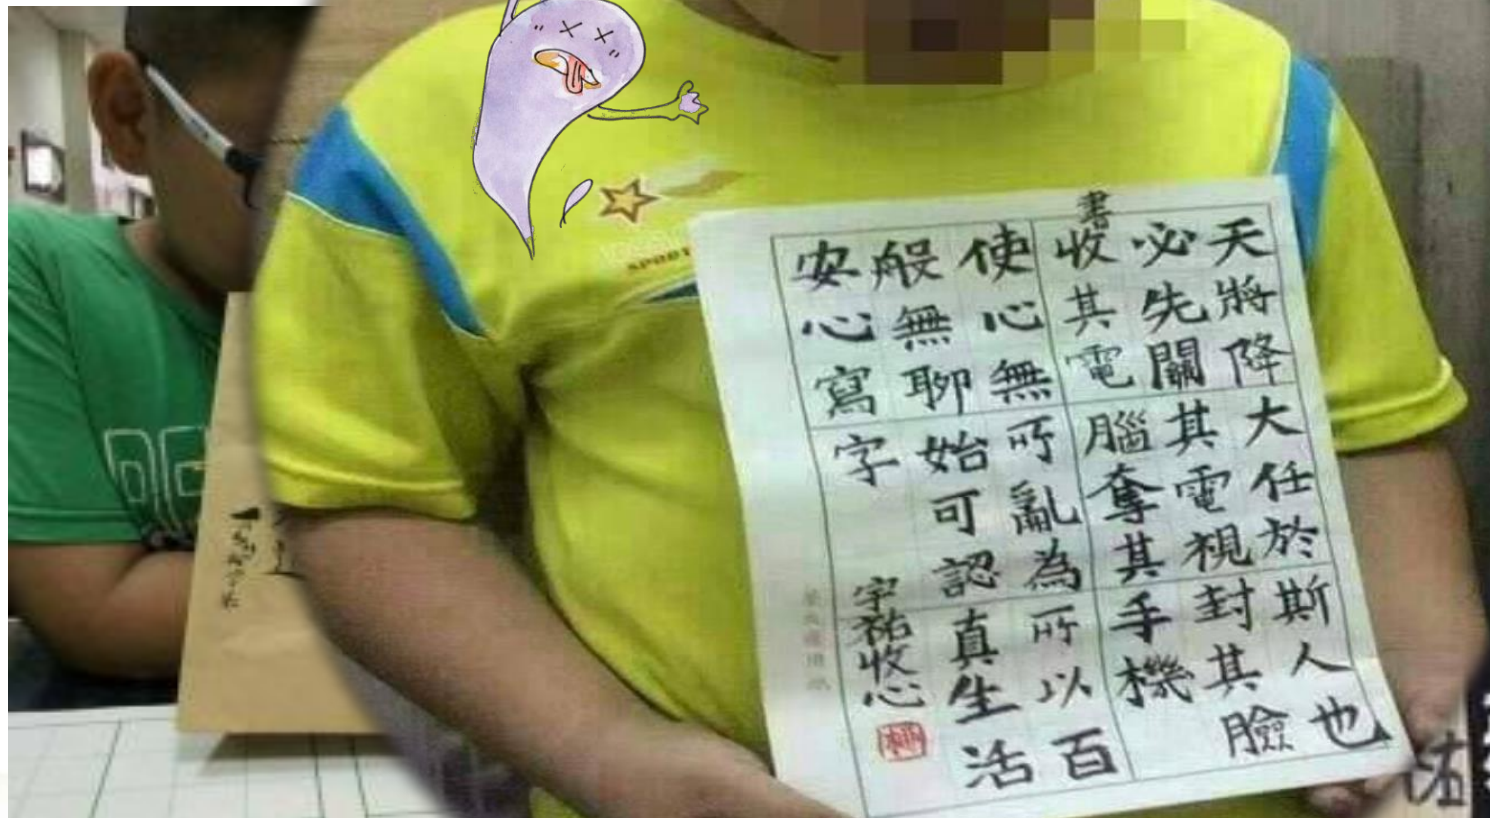 天將降大任於斯人也
必先關其電視封其臉
書收其電腦奪其手機
使心無所亂為所以百
般無聊始可認真生活
安心寫字
宇祐收心
SPORT